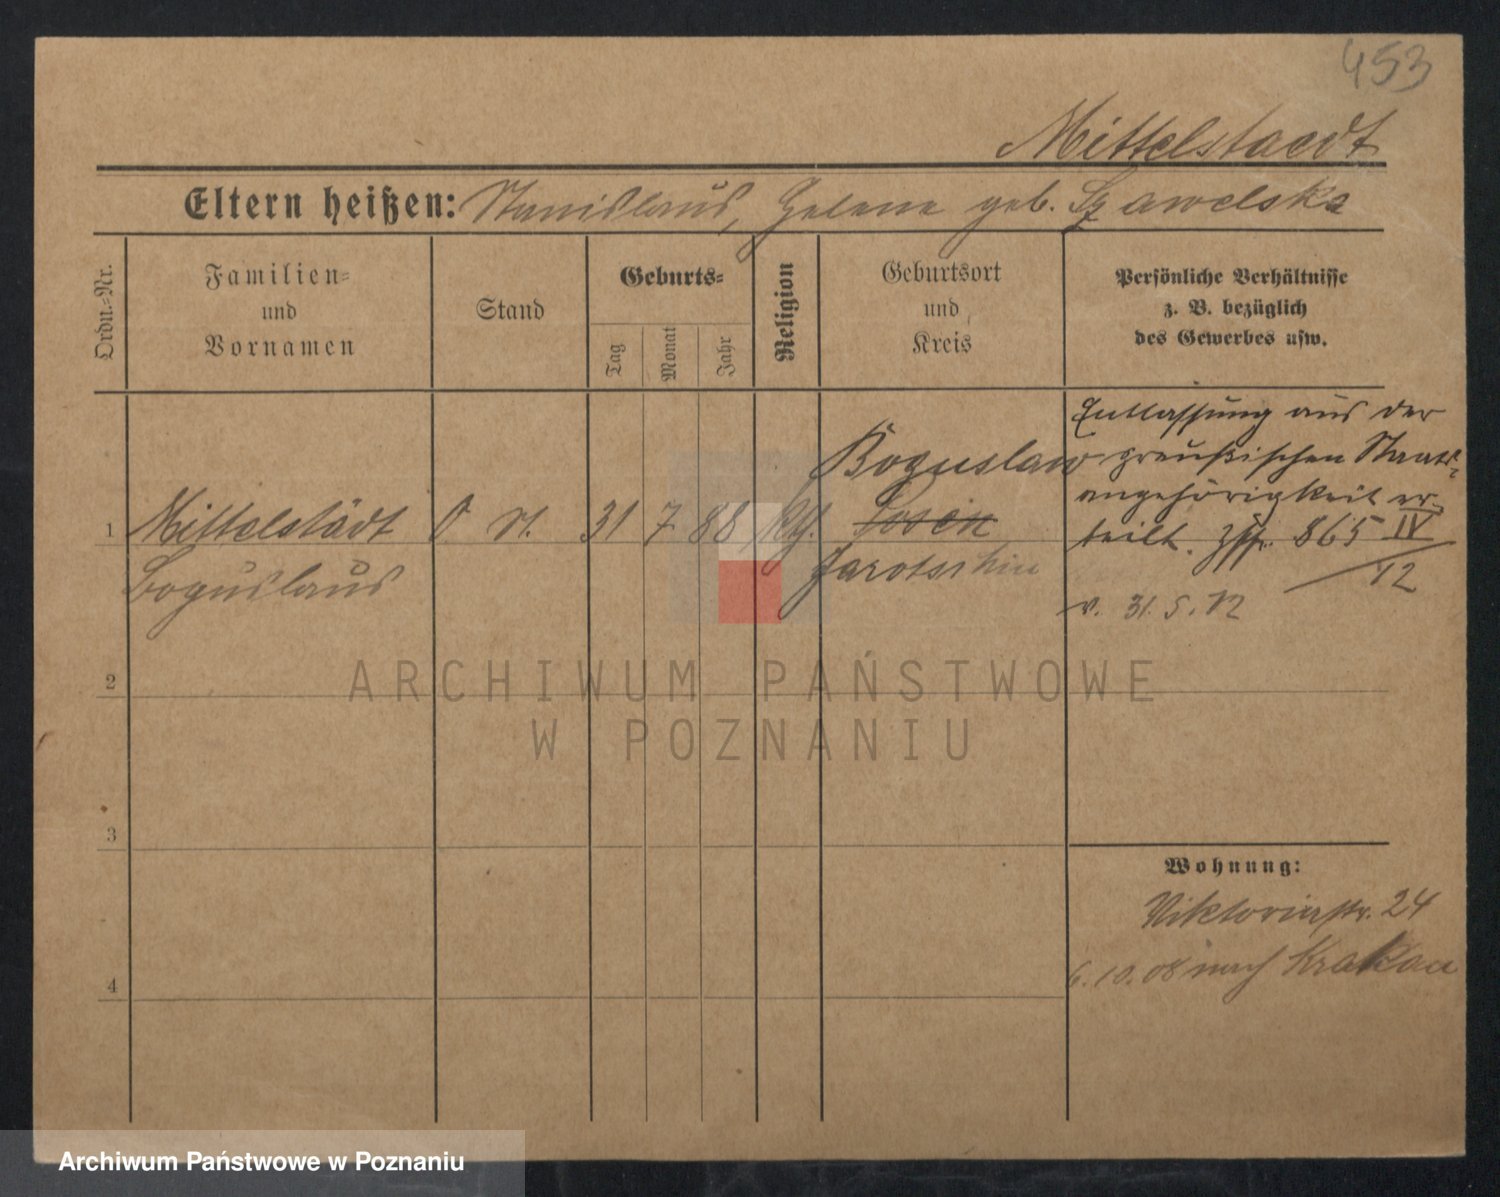 453
Mittelstaedt
Eltern heißen: Stanislaus, Helene geb. Szawelska
Ordn.-Nr.
Familien-
und
Vornamen
Stand
Geburts-
Tag
Monat
Jahr
Religion
Geburtsort
und
Kreis
Persönliche Verhältnisse
z. B. bezüglich
des Gewerbes usw.
1
Mittelstädt
Boguslaus
31 7 88
Boguslaw
Posen
Jarotschin
Entlassung aus der
preußischen Staats-
angehörigkeit er-
teilt. 865 IV
/12
v. 31.5.12
2
3
4
Wohnung:
Viktoriastr. 24
6.10.08 nach Krakau
ARCHIWUM PAŃSTWOWE
W POZNANIU
Archiwum Państwowe w Poznaniu